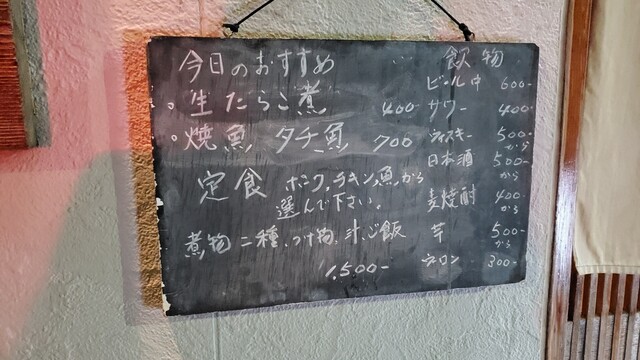 今日のおすすめ
。生たらこ煮 400-
。焼魚 タチ魚 700
定食 ポーク,チキン,魚,から
選んで下さい。
煮物二種、つけ物、汁、ご飯
1,500-
飲物
ビール中 600-
サワー 400-
ウィスキー 500-から
日本酒 500-から
麦焼酎 400-から
芋 500-から
ウーロン 300-